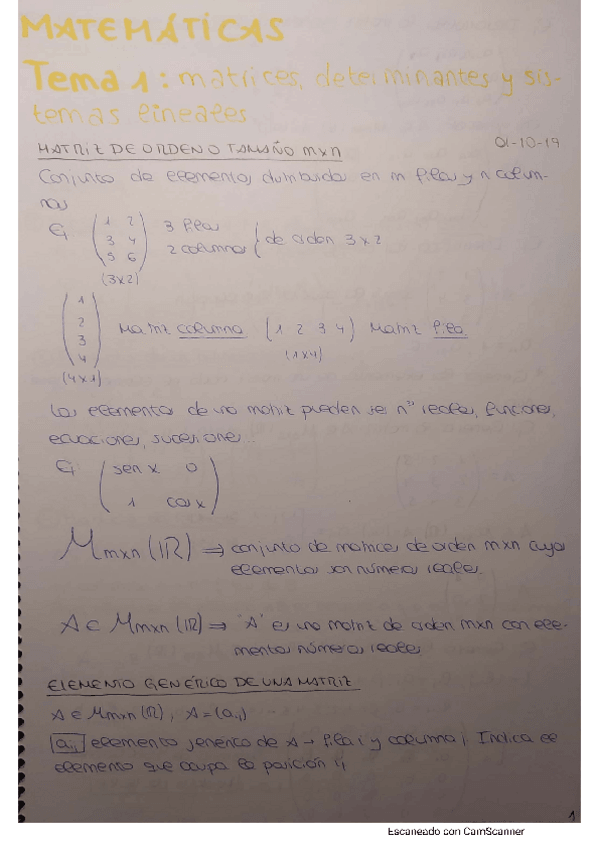 MATEMÁTICAS
Tema 1: matrices, determinantes y sis-
temas lineales
MATRIZ DE ORDEN O TAMAÑO mxn 01-10-19
Conjunto de elementos distribuidos en m filas y n colum-
nas
Ej (1 2
3 4
5 6) 3 filas
2 columnas } de orden 3x2
(3x2)
(1
2
3
4) Matriz columna (1 2 3 4) Matriz fila
(4x1) (1x4)
Los elementos de una matriz pueden ser nos reales, funciones,
ecuaciones, sucesiones...
Ej (sen x 0
1 cos x)
Mmxn (IR) ⇒ conjunto de matrices de orden mxn cuyos
elementos son números reales.
A ∈ Mmxn (IR) ⇒ "A" es una matriz de orden mxn con ele-
mentos números reales
ELEMENTO GENÉRICO DE UNA MATRIZ
A ∈ Mmxn (IR), A = (aij)
aij elemento generico de A → fila i y columna j Indica el
elemento que ocupa la posición ij
1
Escaneado con CamScanner